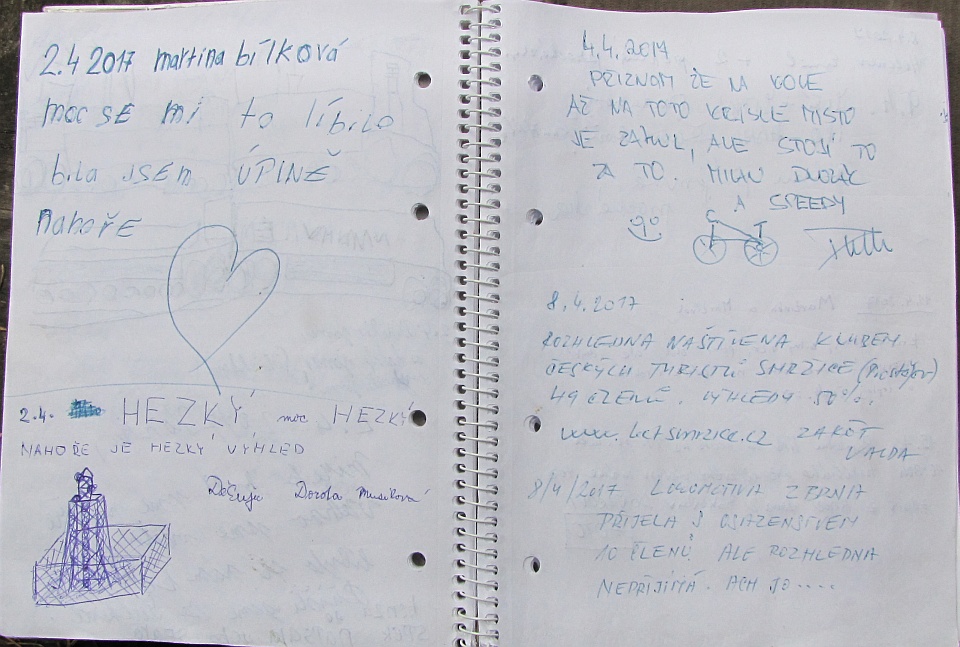 2.4 2017 martina bílková
moc SE mi to líbilo
bila JSEM ÚPLNĚ
nahořE
2.4. HEZKÝ, moc HEZKÝ
NAHOŘE JE HEZKÝ VÝHLED
Děkuju Dorota Musilová
4.4.2017
PŘIZNOM ŽE NA KOLE
AŽ NA TOTO KRÁSNÉ MÍSTO
JE ZÁHUL, ALE STOJÍ TO
ZA TO. MILAN DVOŘÁK
A SPEEDY
8.4.2017
ROZHLEDNA NAŠTÍVENA KLUBEM
ČESKÝCH TURISTŮ SMRŽICE (Prostějov)
49 ČLENŮ. VÝHLEDY 50%.
www.kctsmrzice.cz
VALDA
8/4/2017 LOKOMOTIVA Z BRNA
PŘIJELA S OSAZENSTVEM
10 ČLENŮ ALE ROZHLEDNA
NEPŘIJÍMÁ. ACH JO.....